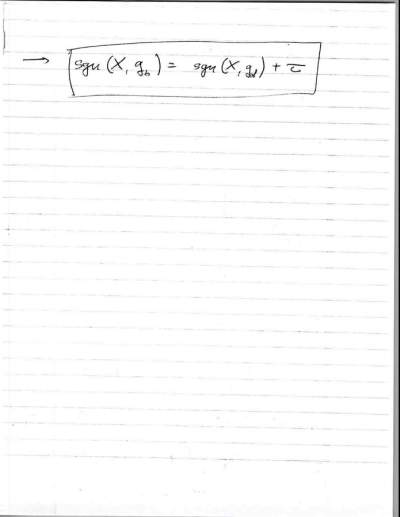 → sgn (X, g_b) = sgn (X, g_d) + τ